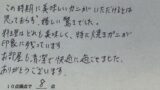 この時期に美味しいカニがいただけるとは
思っておらず、嬉しい驚きでした。
料理はどれも美味しく、特に焼きガニが
印象に残っています
お部屋も清潔で快適に過ごせました。
ありがとうございます。
10点満点で 8 点